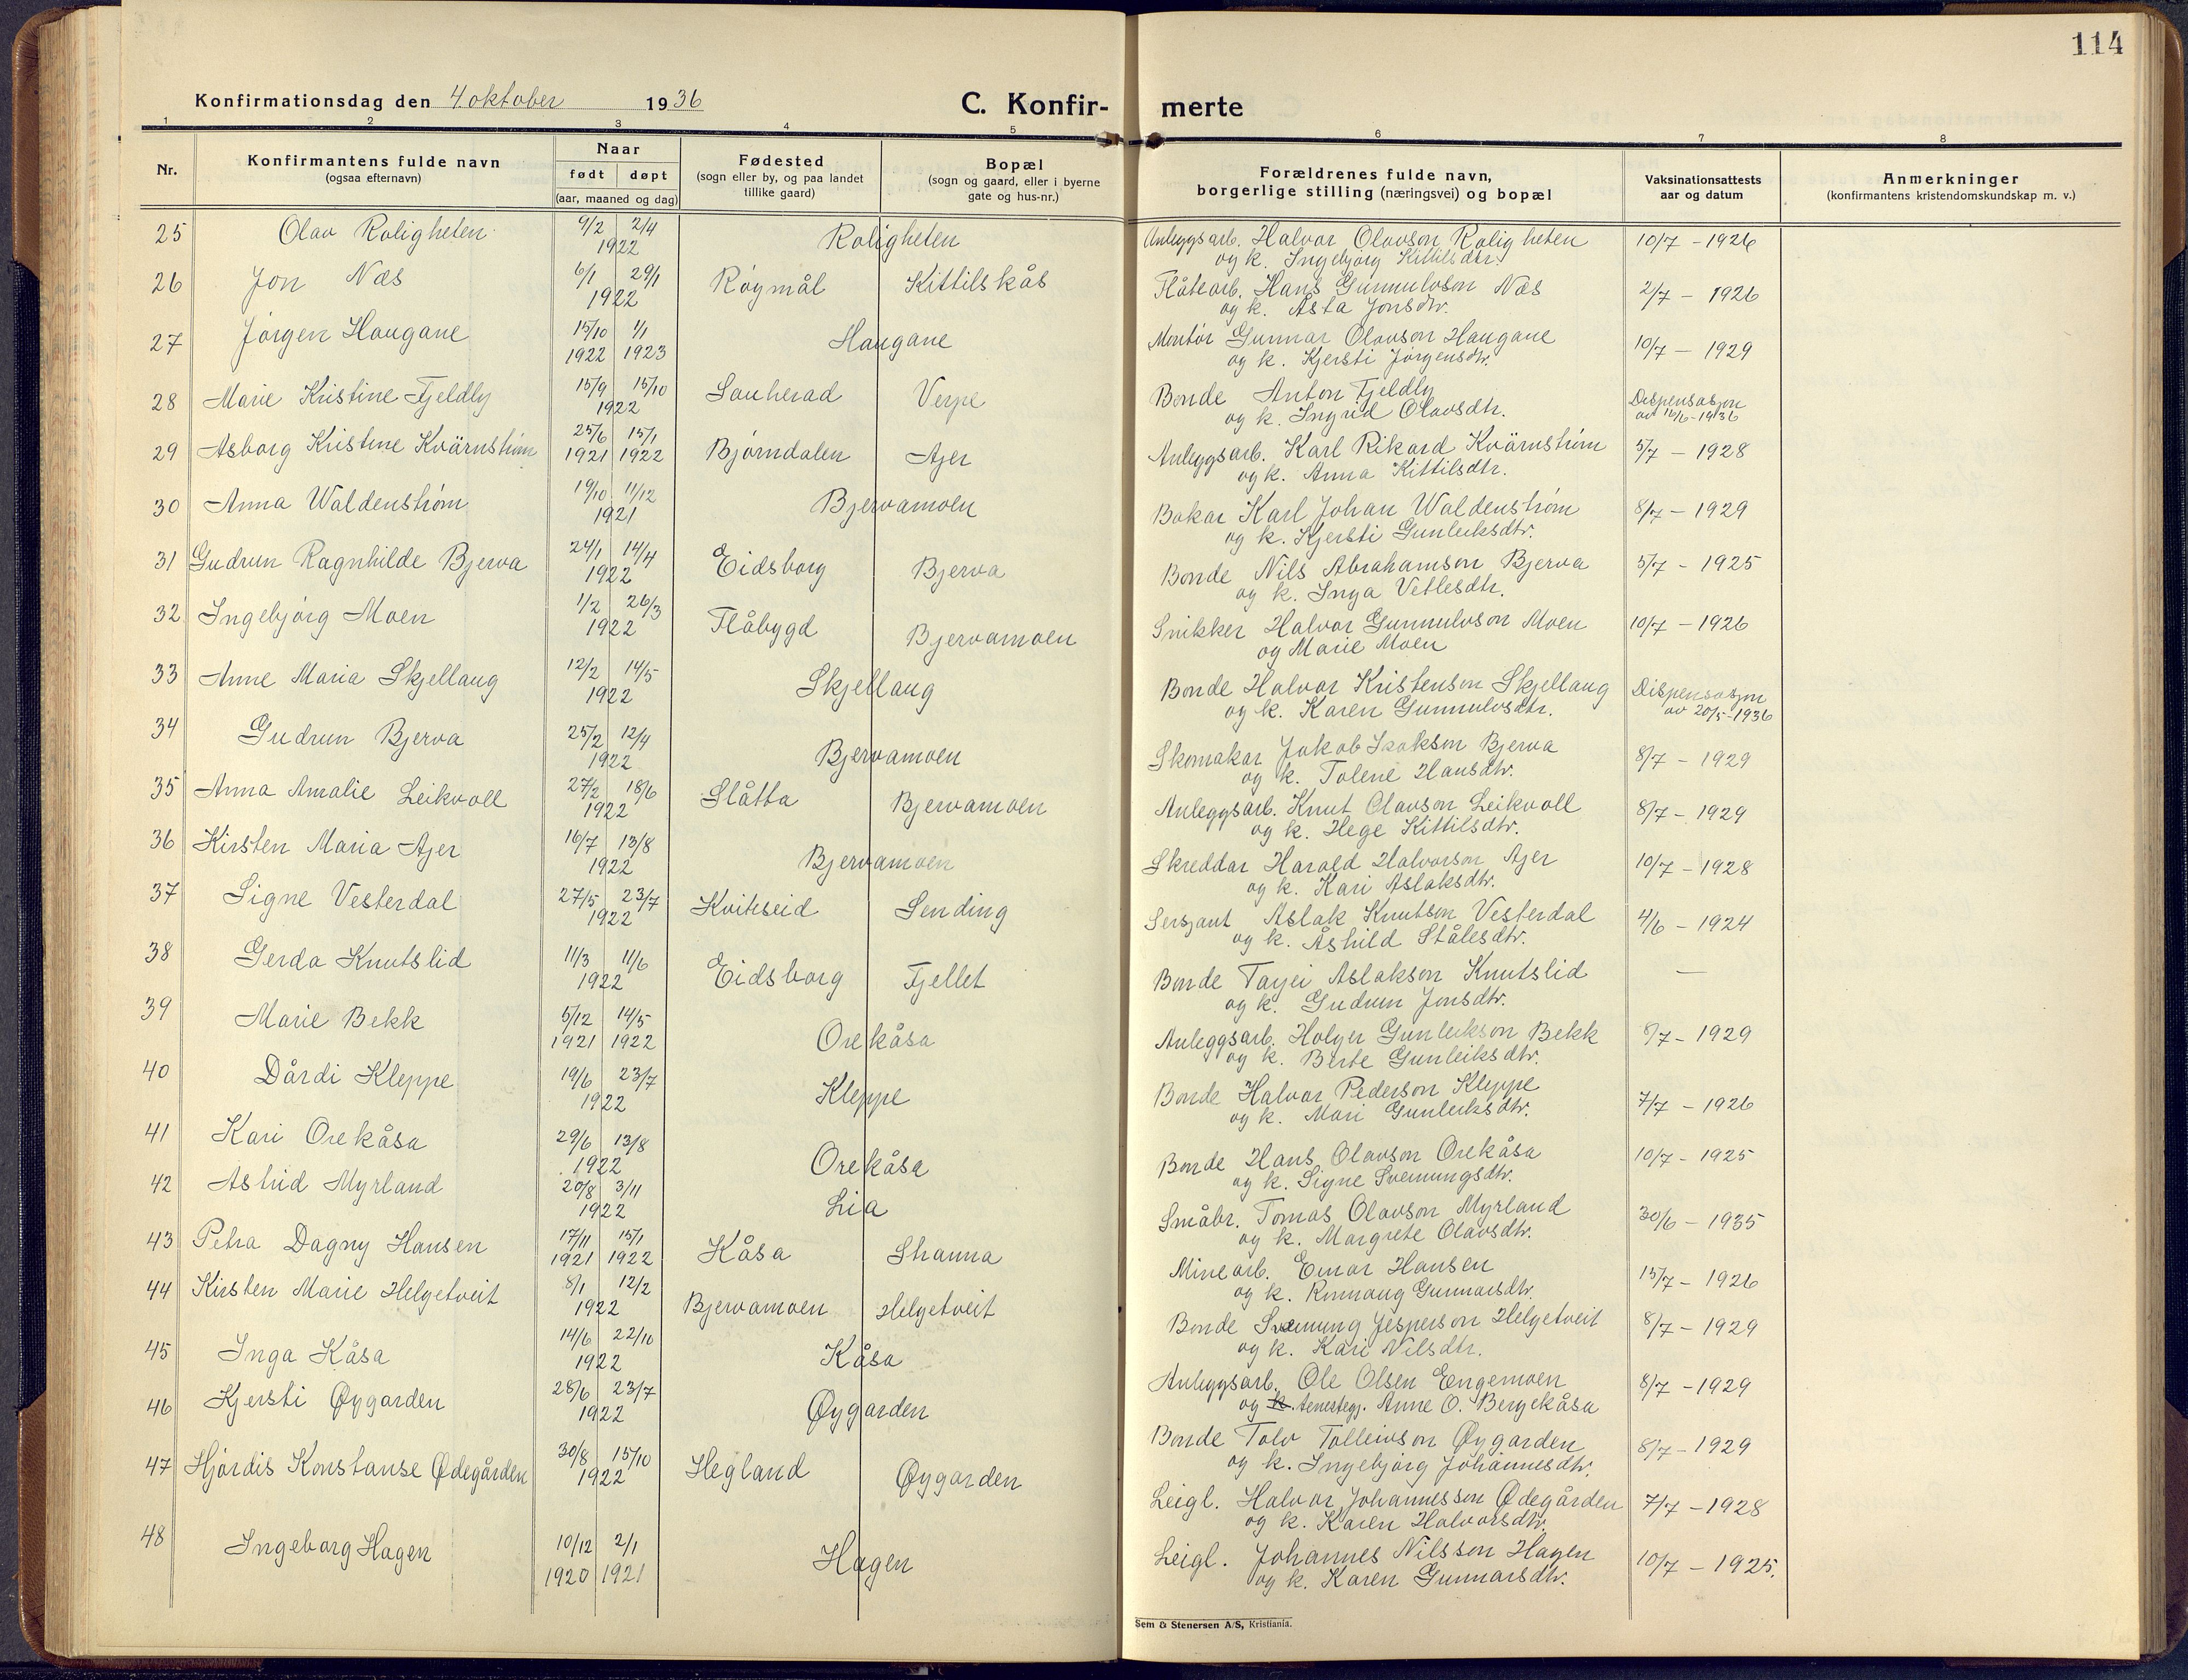 114
Konfirmationsdag den 4. oktober 1936
C. Konfir- merte
1 2 3 4 5 6 7 8
Nr.
Konfirmantens fulde navn
(ogsaa efternavn)
Naar
født døpt
(aar, maaned og dag)
Fødested
(sogn eller by, og paa landet
tillike gaard)
Bopæl
(sogn og gaard, eller i byerne
gate og hus-nr.)
Forældrenes fulde navn,
borgerlige stilling (næringsvei) og bopæl
Vaksinationsattests
aar og datum
Anmerkninger
(konfirmantens kristendomskundskap m. v.)
25 Olav Roligheten 9/2 2/4 Roligheten Anleggsarb. Halvor Olavson Roligheten 10/7 - 1926
1922 og k. Ingebjørg Kittilsdtr.
26 Jon Næs 6/1 29/1 Røymål Kittilskås Flåtearb. Hans Gunnulvson Næs 2/7 - 1926
1922 og k. Asta Jonsdtr.
27 Jørgen Haugane 15/10 1/1 Haugane Montør Gunnar Olavson Haugane 10/7 - 1929
1922 1923 og k. Kjersti Jørgensdtr.
28 Marie Kristine Fjeldly 15/9 15/10 Sauherad Verpe Bonde Anton Fjeldly Dispensasjon
1922 og k. Ingrid Olavsdtr. av 16/6-1936
29 Asborg Kristine Kvärnstrøm 25/6 15/1 Bjørndalen Ajer Anleggsarb. Karl Rikard Kvärnstrøm 5/7 - 1928
1921 1922 og k. Anna Kittilsdtr.
30 Anna Waldenstrøm 19/10 11/12 Bjervamoen Bakar Karl Johan Waldenstrøm 8/7 - 1929
1921 og k. Kjersti Gunleiksdtr.
31 Gudrun Ragnhilde Bjerva 24/1 14/4 Eidsborg Bjerva Bonde Nils Abrahamson Bjerva 5/7 - 1925
1922 og k. Inga Vetlesdtr.
32 Ingebjørg Moen 1/2 26/3 Flåbygd Bjervamoen Snikker Halvor Gunnulvson Moen 10/7 - 1926
1922 og Marie Moen
33 Anne Maria Skjellaug 12/2 14/5 Skjellaug Bonde Halvor Kristenson Skjellaug Dispensasjon
1922 og k. Karen Gunnulvsdtr. av 20/5-1936
34 Gudrun Bjerva 25/2 12/4 Bjervamoen Skomakar Jakob Isakson Bjerva 8/7 - 1929
1922 og k. Tolene Hansdtr.
35 Anna Amalie Leikvoll 27/2 18/6 Slåtta Bjervamoen Anleggsarb. Knut Olavson Leikvoll 8/7 - 1929
1922 og k. Hege Kittilsdtr.
36 Kirsten Maria Ajer 16/7 13/8 Bjervamoen Skreddar Harald Halvorson Ajer 10/7 - 1928
1922 og k. Kari Aslaksdtr.
37 Signe Vesterdal 27/5 23/7 Kviteseid Sending Sersjant Aslak Knutson Vesterdal 4/6 - 1924
1922 og k. Åshild Stålesdtr.
38 Gerda Knutslid 11/3 11/6 Eidsborg Fjellet Bonde Tarjei Aslakson Knutslid —
1922 og k. Gudrun Jonsdtr.
39 Marie Bekk 5/12 14/5 Orekåsa Anleggsarb. Holger Gunleikson Bekk 8/7 - 1929
1921 1922 og k. Berte Gunleiksdtr.
40 Dårdi Kleppe 19/6 23/7 Kleppe Bonde Halvor Pederson Kleppe 7/7 - 1926
1922 og k. Mari Gunleiksdtr.
41 Kari Orekåsa 29/6 13/8 Orekåsa Bonde Hans Olavson Orekåsa 10/7 - 1925
1922 og k. Signe Sveinungsdtr.
42 Astrid Myrland 20/8 3/11 Lia Småbr. Tomas Olavson Myrland 30/6 - 1935
1922 og k. Margrete Olavsdtr.
43 Petra Dagny Hansen 17/11 15/1 Kåsa Stranna Minearb. Einar Hansen 15/7 - 1926
1921 1922 og k. Rannaug Gunnarsdtr.
44 Kirsten Marie Helgetveit 8/1 12/2 Bjervamoen Helgetveit Bonde Sveinung Jesperson Helgetveit 8/7 - 1929
1922 og k. Kari Nilsdtr.
45 Inga Kåsa 14/6 22/10 Kåsa Anleggsarb. Ole Olsen Engemoen 8/7 - 1929
1922 og k. tenestegj. Anne O. Bergekåsa
46 Kjersti Øygarden 28/6 23/7 Øygarden Bonde Tolv Tolleivson Øygarden 8/7 - 1929
1922 og k. Ingebjørg Johannesdtr.
47 Hjørdis Konstanse Ødegården 30/8 15/10 Hegland Øygarden Leigl. Halvor Johannesson Ødegården 7/7 - 1928
1922 og k. Karen Halvorsdtr.
48 Ingeborg Hagen 10/12 2/1 Hagen Leigl. Johannes Nilsson Hagen 10/7 - 1925.
1920 1921 og k. Karen Gunnarsdtr.
Sem & Stenersen A/S, Kristiania.